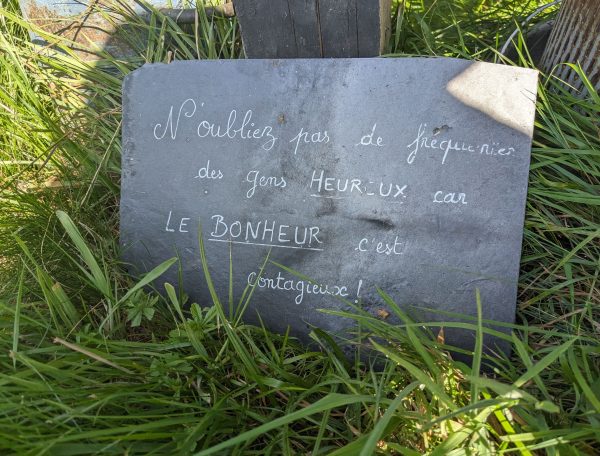 N'oubliez pas de fréquenter
des gens HEUREUX car
LE BONHEUR c'est
contagieux !